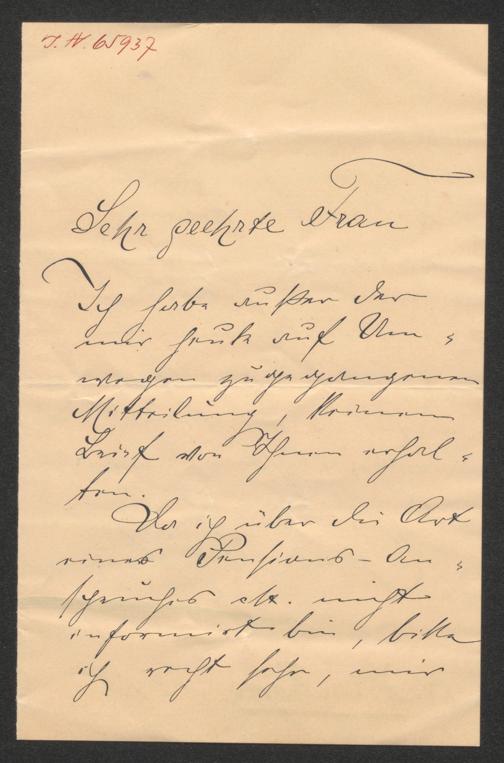 J. N. 65937
Sehr geehrte Frau
Ich habe außer der
mir heute auf Um =
wegen zugegangenen
Mitteilung, keinen
Brief von Ihnen erhal =
ten.
Da ich über die Art
eines Pensions - An =
spruches etc. nicht
informirt bin, bitte
ich recht sehr, mir